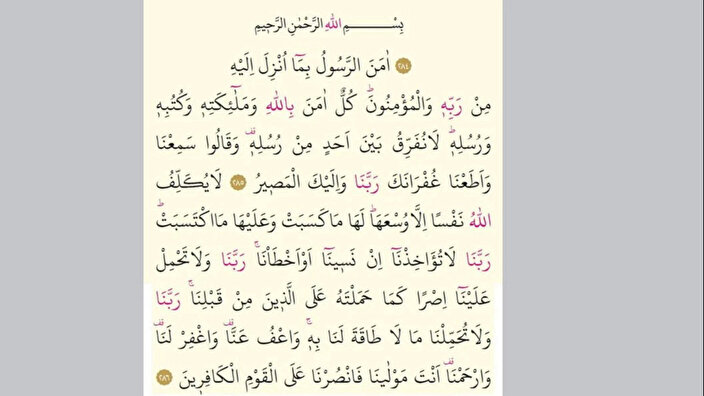 بِسْـــــــمِ اللهِ الرَّحْمٰنِ الرَّحٖيمِ
﴿٢٨٤﴾ اٰمَنَ الرَّسُولُ بِمَٓا اُنْزِلَ اِلَيْهِ
مِنْ رَبِّهٖ وَالْمُؤْمِنُونَؕ كُلٌّ اٰمَنَ بِاللهِ وَمَلٰٓئِكَتِهٖ وَكُتُبِهٖ
وَرُسُلِهٖؕ لَانُفَرِّقُ بَيْنَ اَحَدٍ مِنْ رُسُلِهٖࣞ وَقَالُوا سَمِعْنَا
وَاَطَعْنَا غُفْرَانَكَ رَبَّنَا وَاِلَيْكَ الْمَصٖيرُ ﴿٢٨٥﴾ لَايُكَلِّفُ
اللهُ نَفْسًا اِلَّا وُسْعَهَاؕ لَهَا مَاكَسَبَتْ وَعَلَيْهَا مَااكْتَسَبَتْؕ
رَبَّنَا لَاتُؤَاخِذْنَٓا اِنْ نَسٖينَٓا اَوْاَخْطَاْنَاۚ رَبَّنَا وَلَاتَحْمِلْ
عَلَيْنَٓا اِصْرًا كَمَا حَمَلْتَهُ عَلَى الَّذٖينَ مِنْ قَبْلِنَاۚ رَبَّنَا
وَلَاتُحَمِّلْنَا مَا لَا طَاقَةَ لَنَا بِهٖۚ وَاعْفُ عَنَّاࣞ وَاغْفِرْ لَنَاࣞ
وَارْحَمْنَاࣞ اَنْتَ مَوْلٰينَا فَانْصُرْنَا عَلَى الْقَوْمِ الْكَافِرٖينَ ﴿٢٨٦﴾